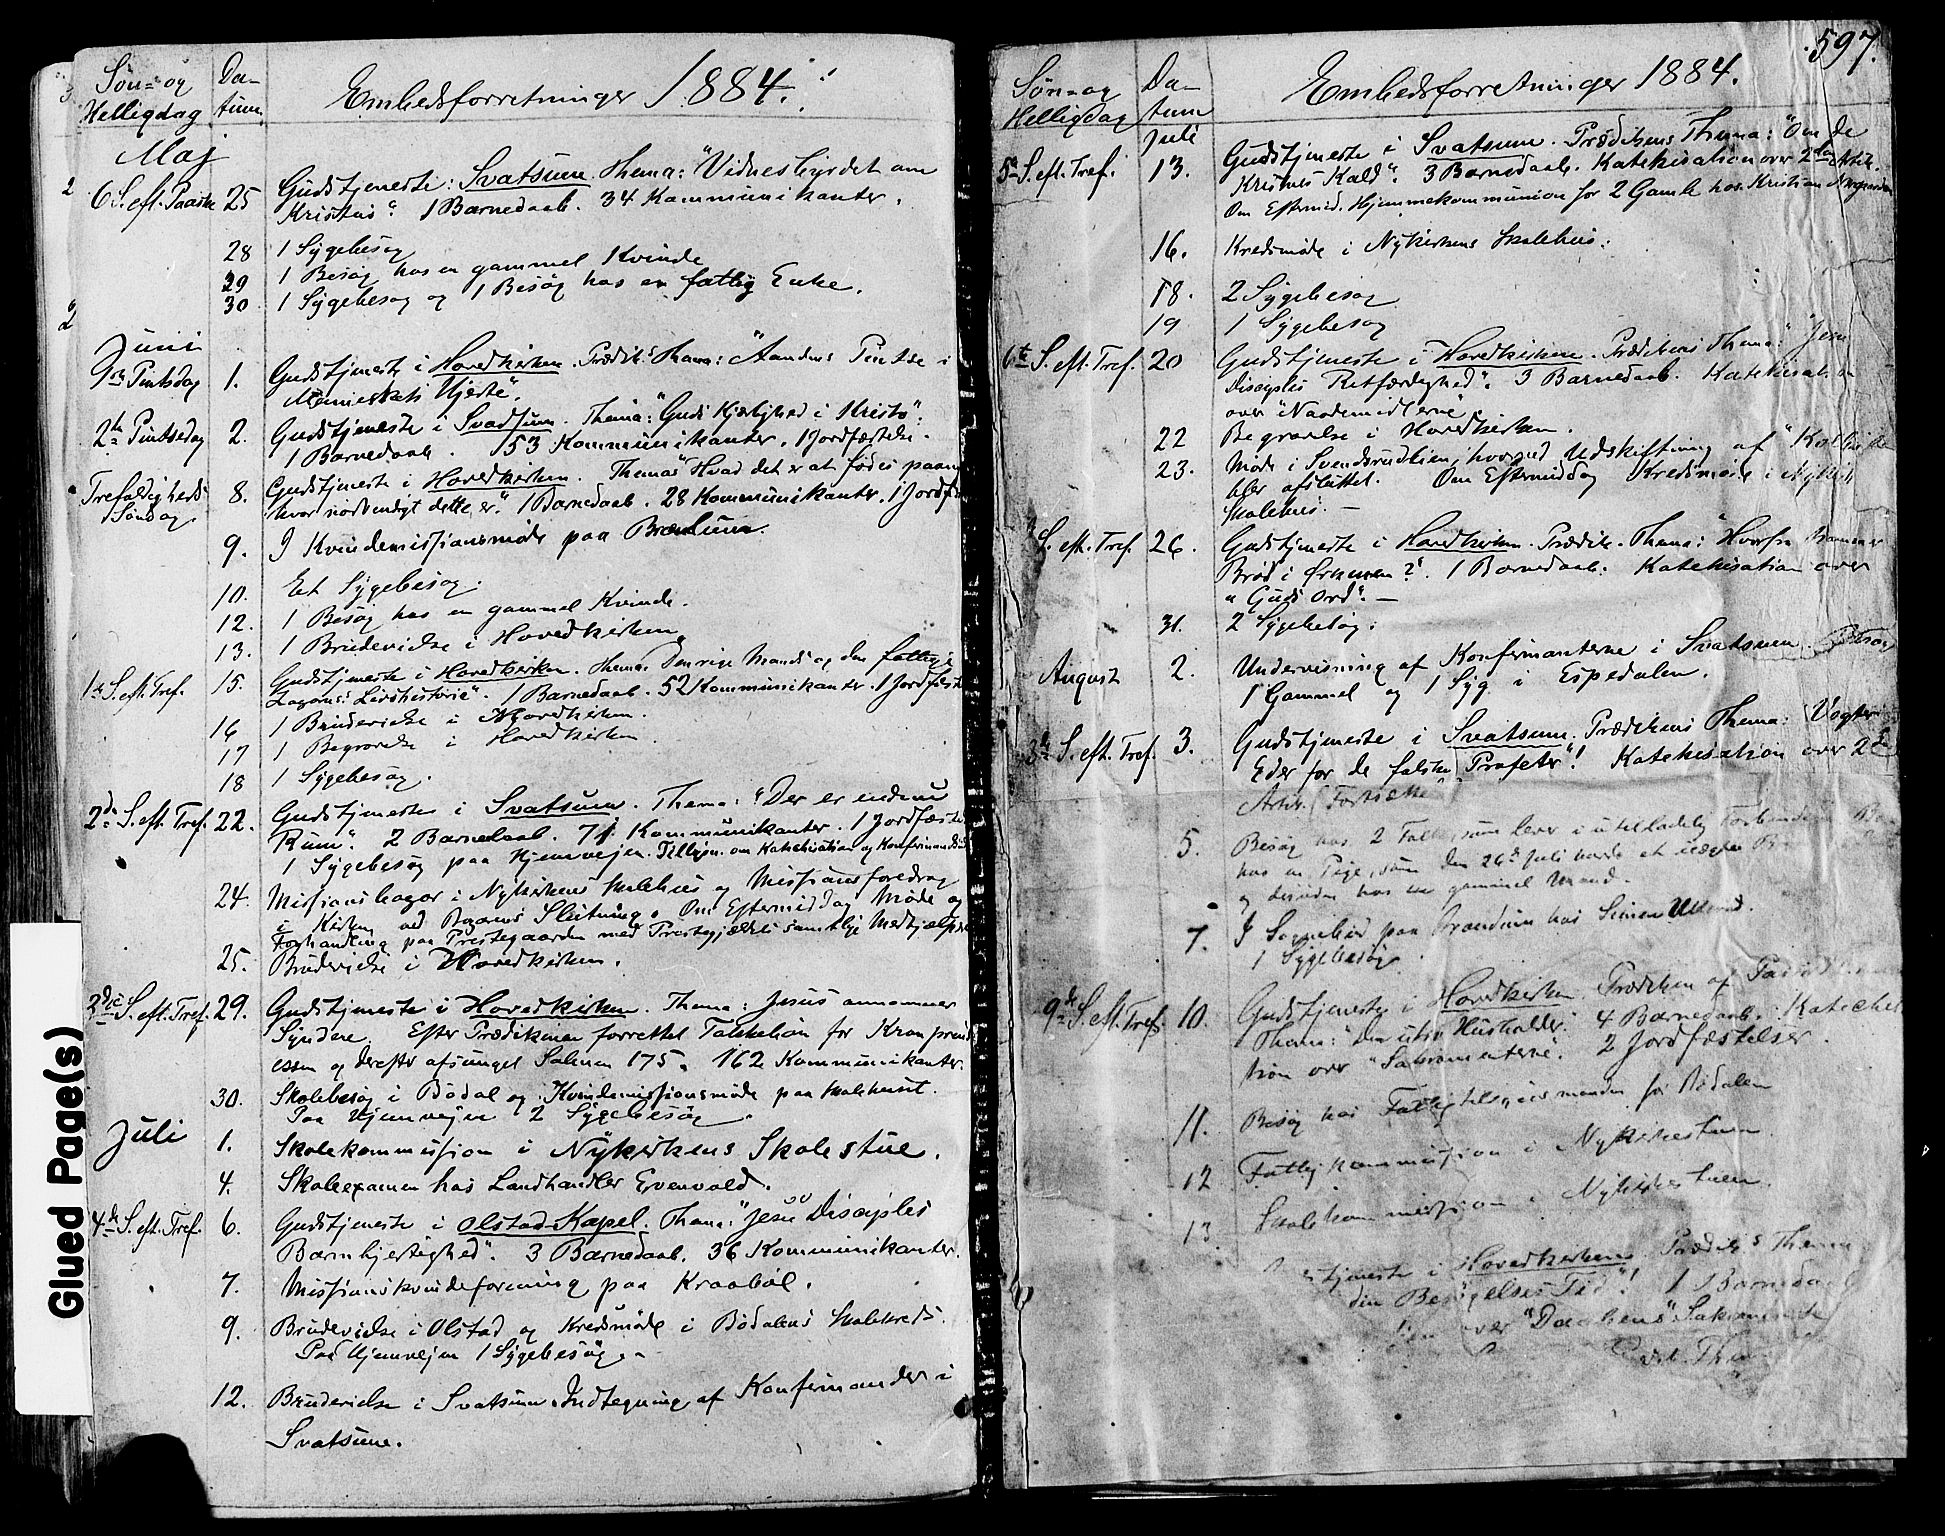 Søn- og
Helligdag
Da-
tum.
Embedsforretninger 1884.
Maj
6 S. eft. Paaske 25 Gudstjeneste: Svatsum. Thema: "Vidnesbyrdet om
Kristus". 1 Barnedaab. 34 Kommunikanter.
28 1 Sygebesøg
29 1 Besøg hos en gammel Kvinde
30 1 Sygebesøg og 1 Besøg hos en fattig Enke.
Juni
1ste Pintsdag 1. Gudstjeneste i Hovedkirken. Prædik's Thema: "Aandens Pintse i
Menneskets Hjerte".
2den Pintsedag 2. Gudstjeneste i Svadsum. Thema: "Guds Kjærlighed i Kristo".
1 Barnedaab. 153 Kommunikanter. 1 Jordfæstelse.
Trefoldigheds
Søndag
8. Gudstjeneste i Hovedkirken. Thema: "Hvad det er at fødes paany
hvor nødvendigt dette er". 1 Barnedaab. 28 Kommunikanter. 1 Jordf
9. I Kvindemissionsmøde paa
10. Et Sygebesøg.
12. 1 Besøg hos en gammel Kvinde.
13. 1 Brudevielse i Hovedkirken.
1ste S. eft. Tref. 15. Gudstjeneste i Hovedkirken. Thema: Den rige Mands og den fattige
Lazarus's Livshistorie". 1 Barnedaab. 52 Kommunikanter. 1 Jordfæst
16 1 Brudevielse i Hovedkirken.
17 1 Begravelse i Hovedkirken.
18 1 Sygebesøg.
2den S. eft. Tref. 22. Gudstjeneste i Svatsum. Thema: "Der er endnu
Rum". 2 Barnedaab. 71 Kommunikanter. 1 Jordfæste
1 Sygebesøg paa Hjemvejen. Tillysn. om Katekisation og
24. Missionsbazar i Nykirkens Skolehus og Missionsforedrag
i Kirken ved Dagens Slutning. Om Eftermiddag Møde og
Forhandling paa Prestegaarden med Prestegjældets samtlige Medhjælpere
25. Brudevielse i Hovedkirken.
3die S. eft. Tref. 29. Gudstjeneste i Hovedkirken. Thema: Jesus annammer
Syndere. Efter Prædikenen forrettet Takkebøn for Kronprind
essen og derefter afsunget Salmen 175. 162 Kommunikanter.
30. Skolebesøg i Bødal og Kvindemissionsmøde paa Skolehuset.
Paa Hjemvejen 2 Sygebesøg.
Juli
1. Skolekommission i Nykirkens Skolestue.
4. Skoleexamen hos Landhandler Evenvold.
4de S. eft. Tref. 6. Gudstjeneste i Olstad Kapel. Thema: "Jesu Disciples
Barmhjertighed". 3 Barnedaab. 36 Kommunikanter.
7. Missionskvindeforening paa Kraabøl.
9. Brudevielse i Olstad og Kredsmøde i Bødalens Skolekreds.
Paa Hjemvejen 1 Sygebesøg.
12. Brudevielse i Svatsum. Indtegning af Konfirmander i
Svatsum.
Glued Page(s)
597.
Søn- og
Helligdag
Da-
tum
Embedsforretninger 1884.
Juli
5te S. eft. Tref. 13. Gudstjeneste i Svatsum. Prædikens Thema: "Om de
Kristnes Kald". 3 Barnedaab. Katekisation over 2den Artik.
Om Eftermid. Hjemmekommunion for 2 Gamle hos Kristian
16. Kredsmøde i Nykirkens Skolehus.
18. 2 Sygebesøg
19 1 Sygebesøg
6te S. eft. Tref. 20 Gudstjeneste i Hovedkirken. Prædikens Thema: "Jesu
Disciples Retfærdighed". 3 Barnedaab. Katekisation
over "Naademidlerne".
22 Begravelse i Hovedkirken.
23. Møde i Svendsrudlien, hvorved Udskiftning af
blev afsluttet. Om Eftermiddag Kredsmøde i Nykirk
Skolehus.
S. eft. Tref. 26. Gudstjeneste i Hovedkirken. Prædik. Thema: "Hvorfra kommer
Brød i Ørkenen?". 1 Barnedaab. Katekisation over
"Guds Ord".
31. 2 Sygebesøg.
August 2. Undervisning af Konfirmanterne i Svatsum. Besøg
1 Gammel og 1 Syg i Espedalen.
S. eft. Tref. 3. Gudstjeneste i Svatsum. Prædikens Thema: Vogter
Eder for de falske Profeter"! Katekisation over 2den
Artik. (Fortsættelse)
5. Besøg hos 2 som lever i utilladelig Forbindelse
hos en Pige, som den 26de Juli havde et uægte B
og desuden hos en gammel Mand.
7. I Sognebud paa hos Simen
1 Sygebesøg.
9de S. eft. Tref. 10. Gudstjeneste i Hovedkirken. Prædiken af
Thema: "Den utro Husholder". 4 Barnedaab. Kateki
tion over "Sakramenterne". 2 Jordfæstelser.
11. Besøg hos Fattigtilsynsmanden for Bødalen
12 Fattigkommission i Nykirkestuen.
13. Skolekommission i Nykirkestuen.
tjeneste i Hovedkirken. Prædik's Thema
din Besøgelses Tid"! 1 Barnedaab
over "Daabens" Sakramente